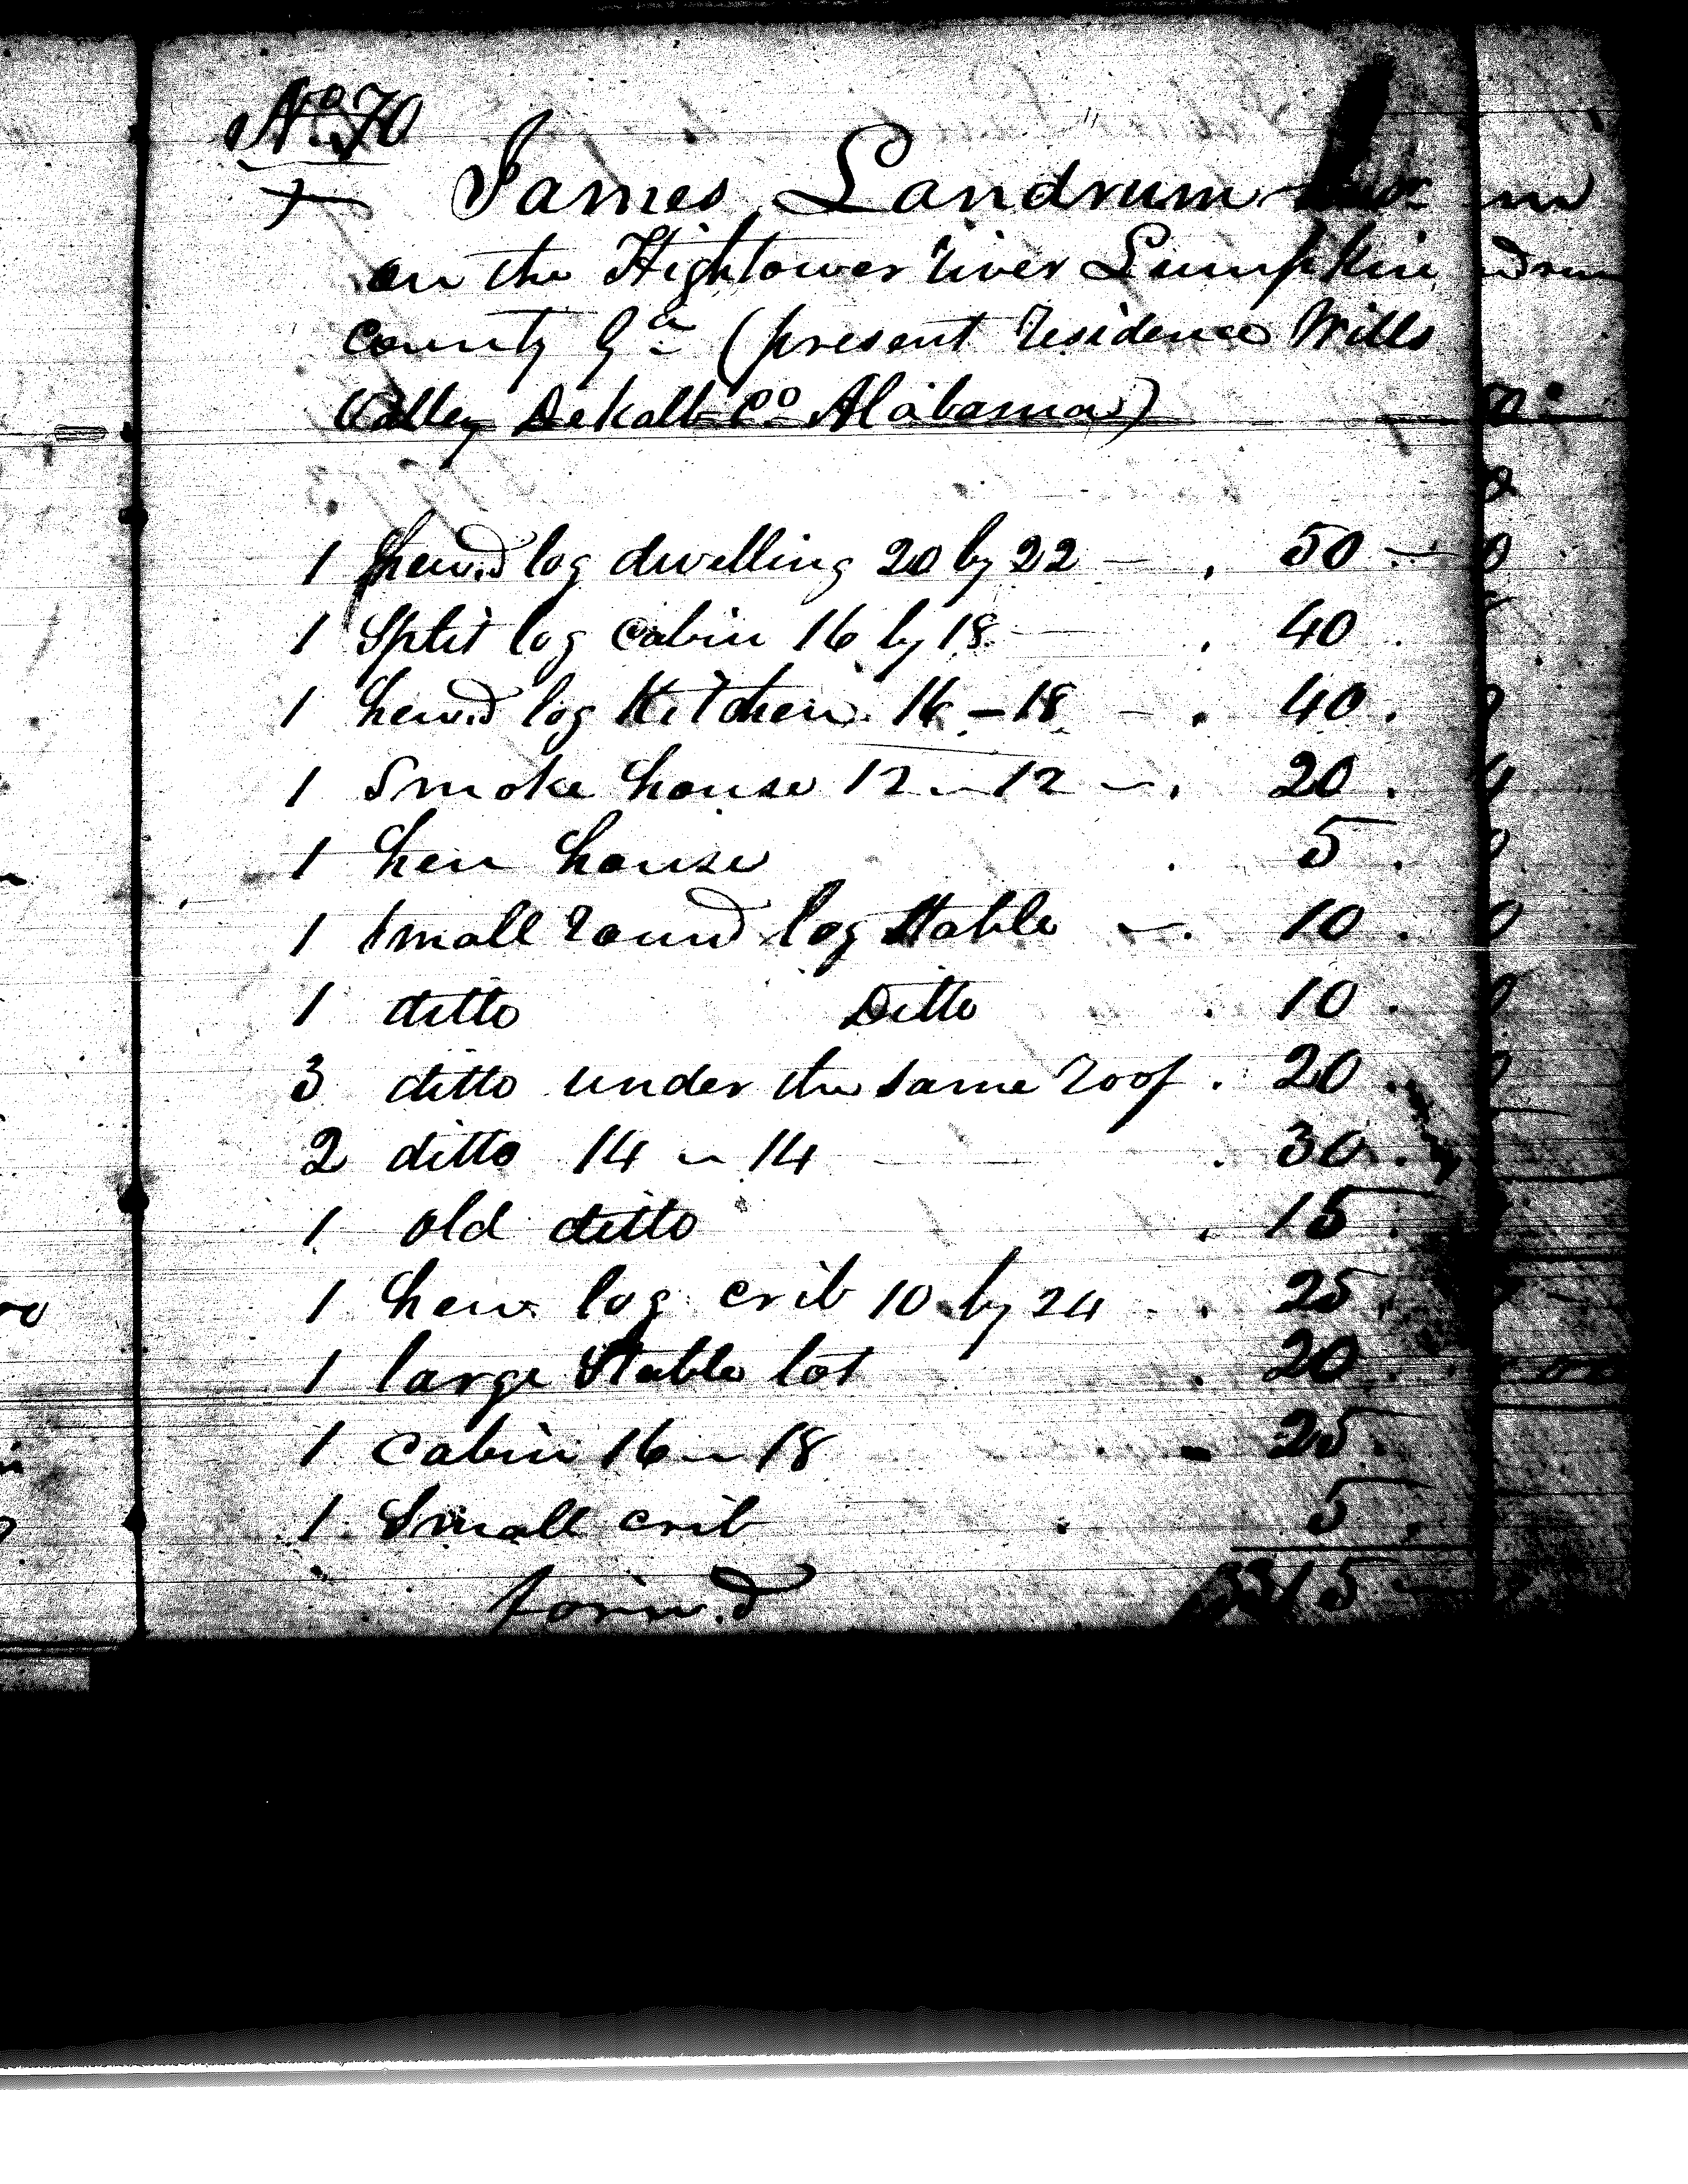 No. 70
James Landrum
on the Hightower river Lumpkin
County Ga (present residence Wills
Valley DeKalb Co Alabama)
1 hew.d log dwelling 20 by 22 — . 50 —
1 Split log cabin 16 by 18 — . 40
1 hew.d log Kitchen 16 – 18 – . 40 .
1 Smoke house 12 – 12 – . 20 .
1 hen house . 5 .
1 small round log stable – . 10 .
1 ditto Ditto . 10 .
3 ditto under the same roof . 20 .
2 ditto 14 – 14 — . 30 .
1 old ditto . 15 .
1 hew log crib 10 by 24 . 25
1 large Stable lot . 20
1 Cabin 16 – 18 - 25 .
1 Small crib . 5
forw.d 315